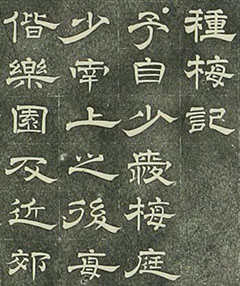 種梅記
予自少愛梅庭
少南上之後每
偕樂園及近郊